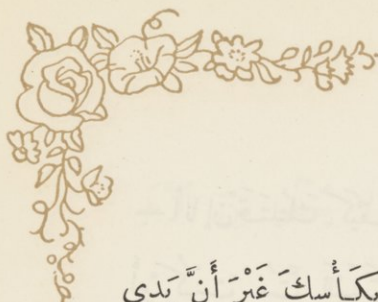 بِكَأْسِكَ غَيْرَ أَنَّ يَدِي